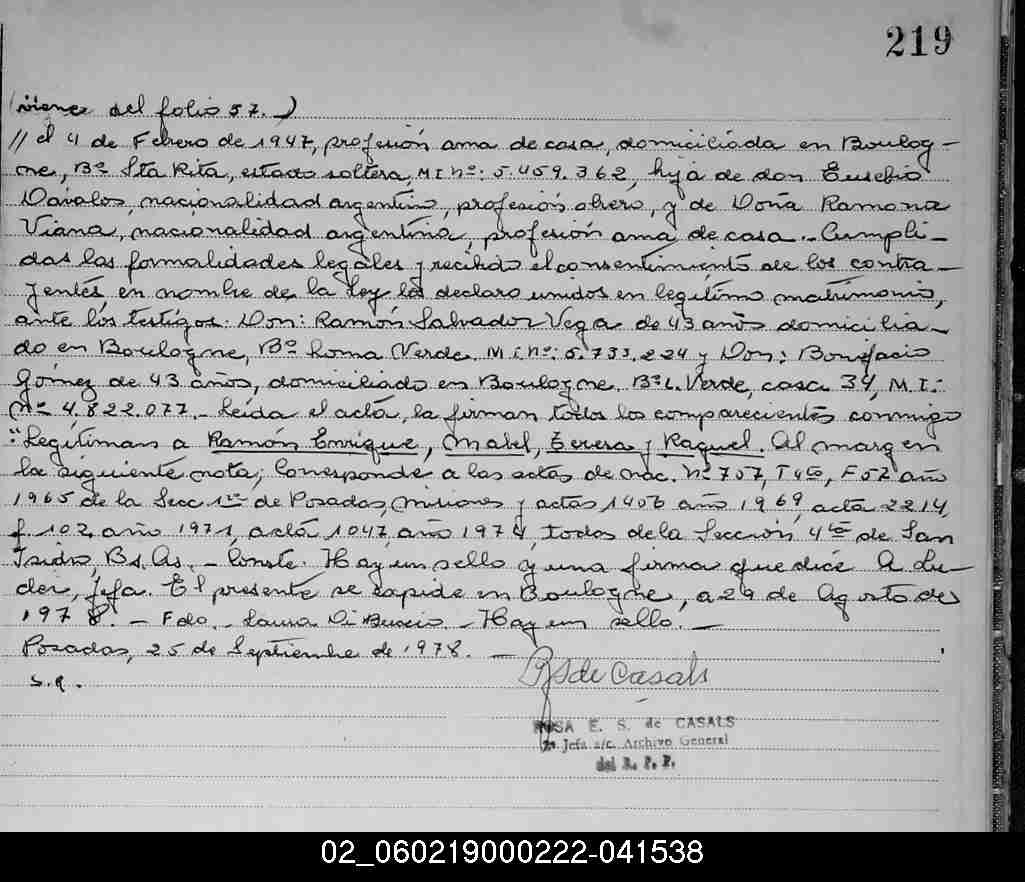 219
(viene del folio 57.)
// el 4 de Febrero de 1947, profesión ama de casa, domiciliada en Boulog-
ne, Bº Sta Rita, estado soltera, M.I. nº: 5.459.362, hija de don Eusebio
Dávalos, nacionalidad argentino, profesión obrero, y de Doña Ramona
Viana, nacionalidad argentina, profesión ama de casa.- Cumpli-
das las formalidades legales y recibido el consentimiento de los contra-
yentes, en nombre de la Ley los declaro unidos en legítimo matrimonio,
ante los testigos: Don: Ramón Salvador Vega de 43 años domicilia-
do en Boulogne, Bº Loma Verde. M.I. nº: 5.733.224 y Don: Bonifacio
Gómez de 43 años, domiciliado en Boulogne. Bº L. Verde, casa 34, M.I.
nº 4.822.077.- Leída el acta, la firman todos los comparecientes conmigo
"Legitiman a Ramón Enrique, Mabel, Teresa y Raquel. Al margen
la siguiente nota; Corresponde a las actas de nac. nº 757, T 4to, F 52 año
1965 de la Secc. 1ra de Posadas, Misiones y actas 1406 año 1969, acta 2214,
f. 102, año 1971, acta 1047, año 1974, todos de la Sección 4ta de San
Isidro, Bs. As.- Conste. Hay un sello y una firma que dice A. Lu-
der, Jefa. El presente se expide en Boulogne, a 29 de Agosto de
1978.- Fdo.- Laura Di - Hay un sello.-
Posadas, 25 de Septiembre de 1978.-
S.R.
R S de Casals
ROSA E. S. de CASALS
2ª Jefa a/c. Archivo General
del R. P. P.
02_060219000222-041538